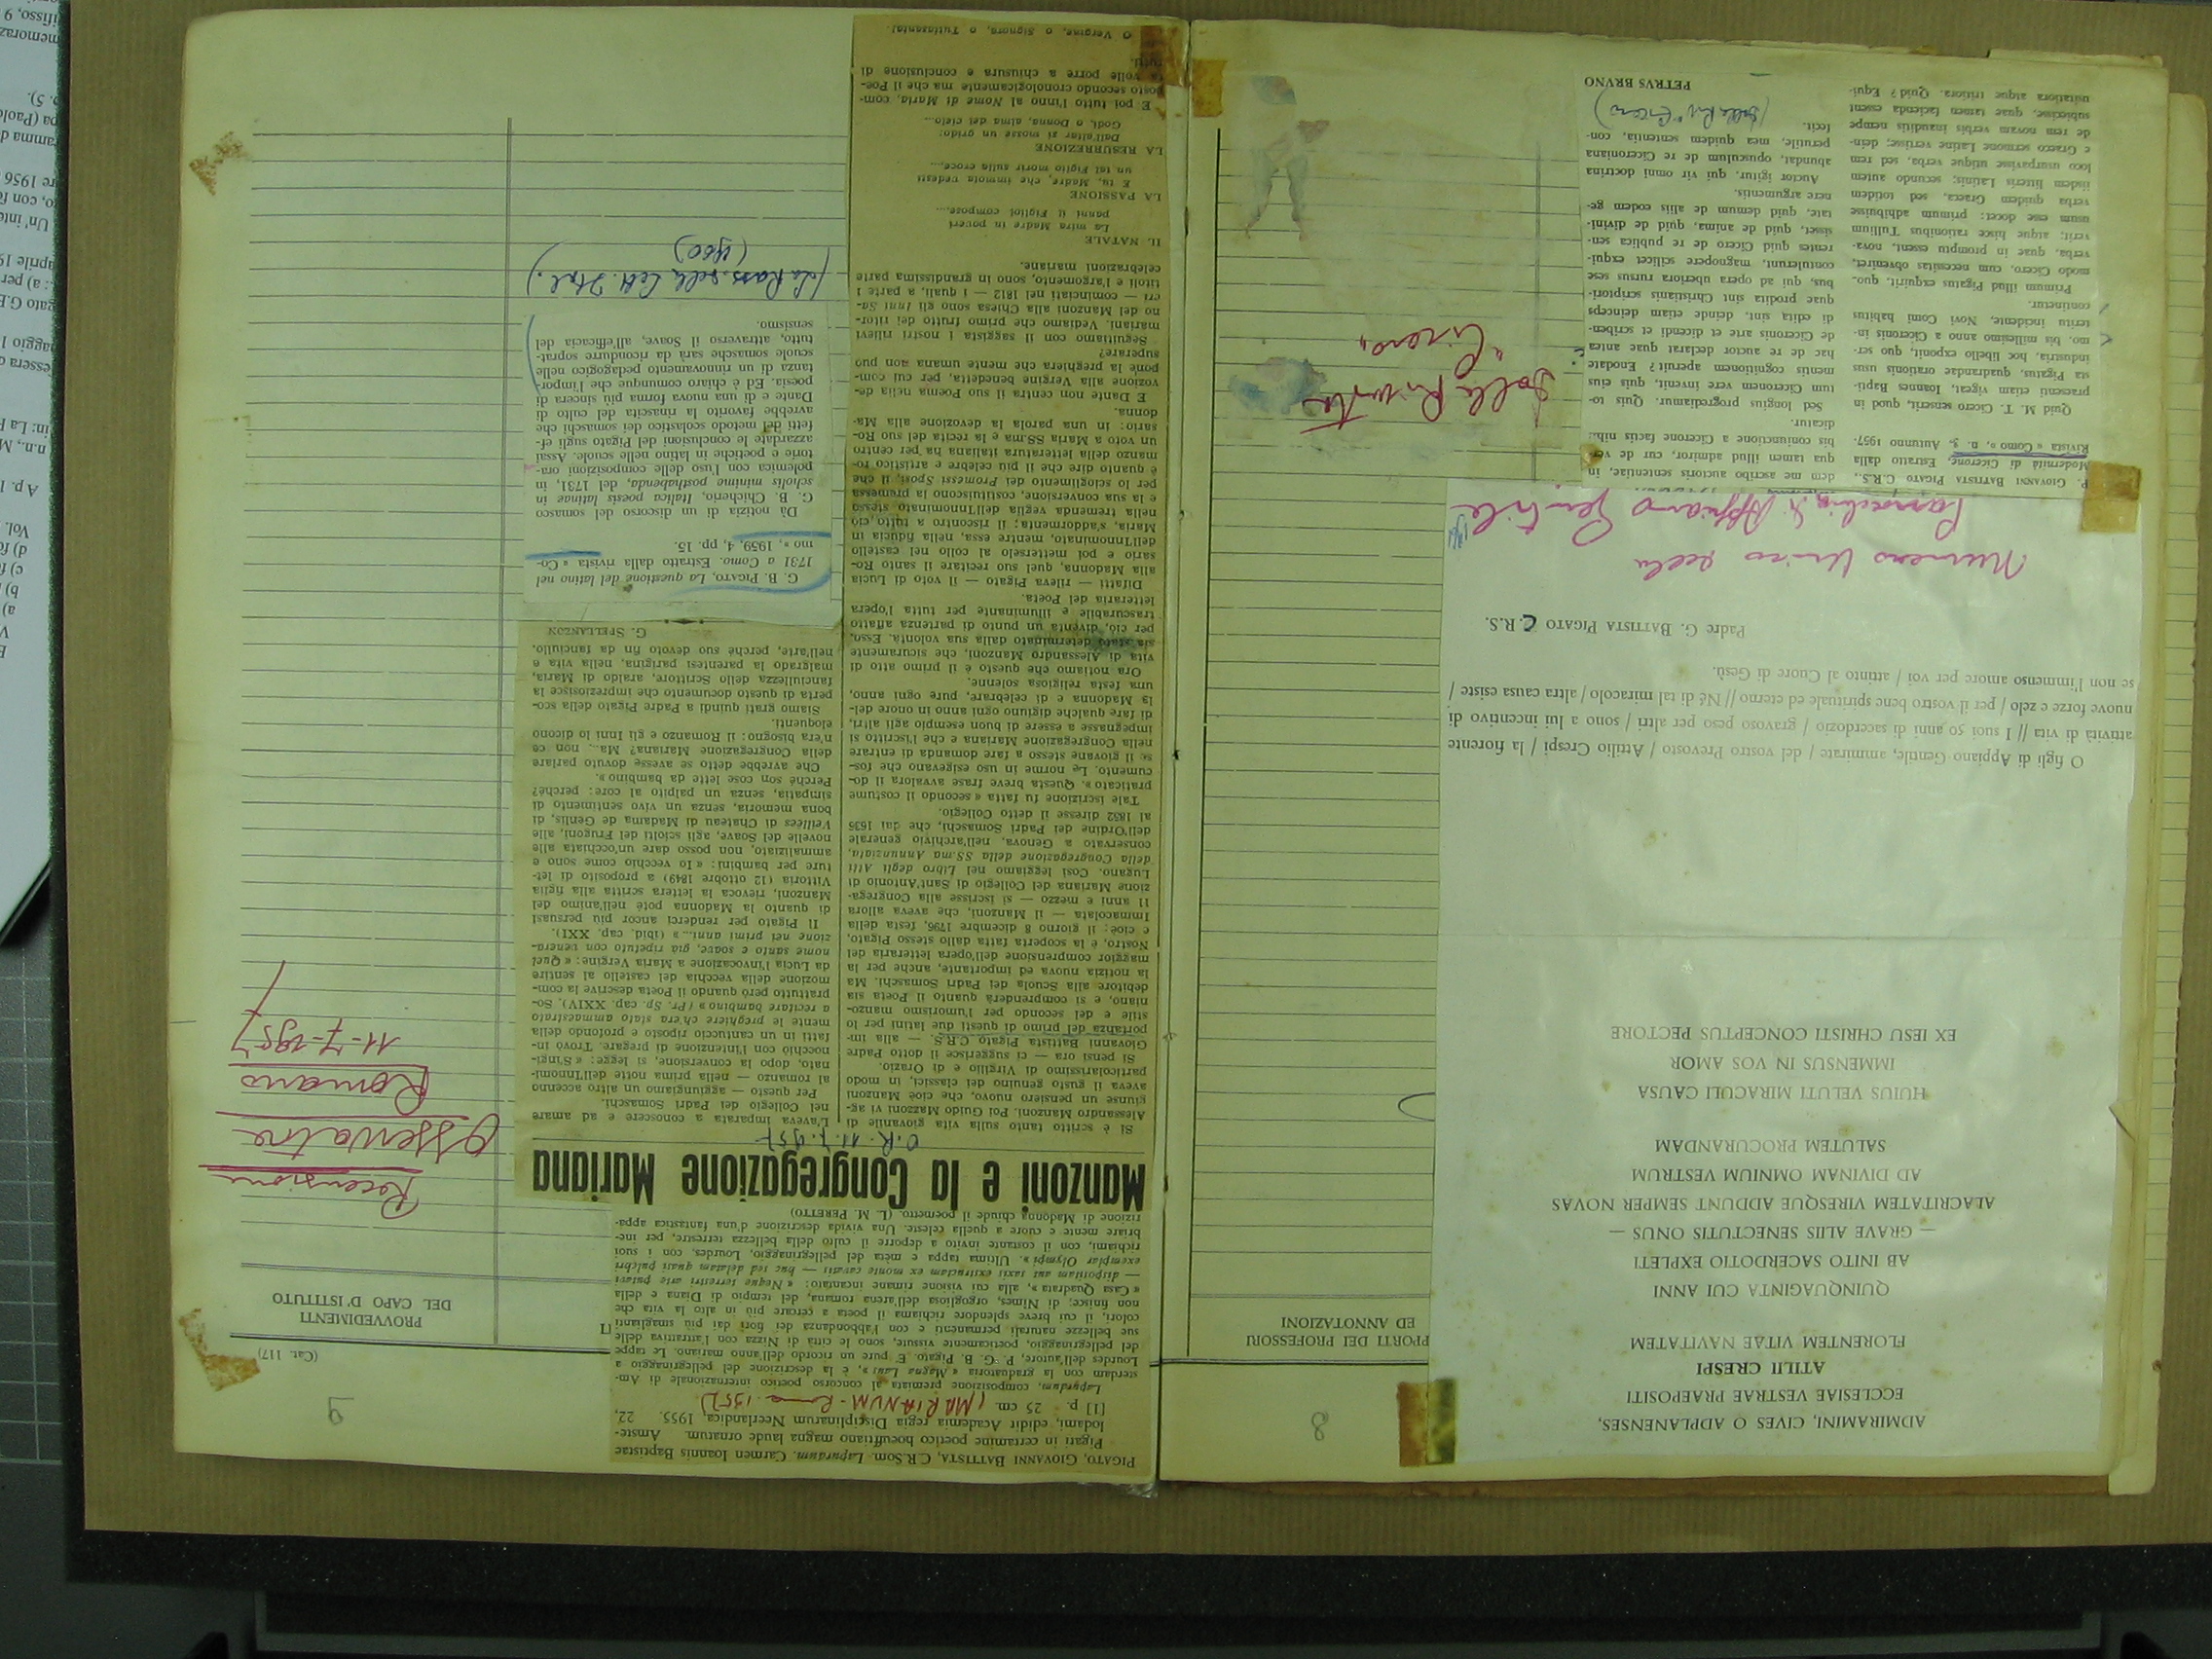 8
ADMIRAMINI, CIVES O ADPLANENSES,
ECCLESIAE VESTRAE PRAEPOSITI
ATILII CRESPI
FLORENTEM VITAE NAVITATEM
QUINQUAGINTA CUI ANNI
AB INITO SACERDOTIO EXPLETI
— GRAVE ALIIS SENECTUTIS ONUS —
ALACRITATEM VIRESQUE ADDUNT SEMPER NOVAS
AD DIVINAM OMNIUM VESTRUM
SALUTEM PROCURANDAM
HUIUS VELUTI MIRACULI CAUSA
IMMENSUS IN VOS AMOR
EX IESU CHRISTI CONCEPTUS PECTORE
O figli di Appiano Gentile, ammirate / del vostro Prevosto / Attilio Crespi / la fiorente
attività di vita // I suoi 50 anni di sacerdozio / gravoso peso per altri / sono a lui incentivo di
nuove forze e zelo / per il vostro bene spirituale ed eterno // Né di tal miracolo / altra causa esiste /
se non l'immenso amore per voi / attinto al Cuore di Gesù.
Padre G. BATTISTA PIGATO C.R.S.
Numero Unico della
Parrocchia di Appiano Gentile
PPORTI DEI PROFESSORI
ED ANNOTAZIONI
P. GIOVANNI BATTISTA PIGATO C.R.S.,
Modernità di Cicerone, Estratto dalla
Rivista « Como », n. 3, Autunno 1957.
Quid M. T. Cicero senserit, quod in
praesenti etiam vigeat, Ioannes Bapti-
sta Pigatus, quadrandae orationis usus
industria, hoc libello exponit, quo ser-
mo, bis millesimo anno a Ciceronis in-
teritu incidente, Novi Comi habitus
continetur.
Primum illud Pigatus exquirit, quo-
modo Cicero, cum necessitas obveniret,
verba, quae in promptu essent, nova-
verit; atque hisce rationibus Tullium
usum esse docet: primum adhibuisse
verba quidem Graeca, sed totidem
iisdem litteris Latinis; secundo autem
loco usurpavisse utique verba, sed rem
e Graeco sermone Latine vertisse; dein-
de rem novam verbis inauditis nempe
subiecisse, quae tamen facienda essent
usitatiora atque tritiora. Quid? Equi-
dem me ascribo auctoris sententiae, in
qua tamen illud admiror, cur de ver-
bis coniunctione a Cicerone factis nihil
dicatur.
Sed longius progrediamur. Quis to-
tum Ciceronem vere invenit, quis eius
mentis cognitionem aperuit? Enodate
hac de re auctor declarat quae antea
de Ciceronis arte et dicendi et scriben-
di edita sint, deinde etiam deinceps
quae prodita sint Christianis scriptori-
bus, qui ad opera uberiora rursus sese
contulerunt, magnopere scilicet exqui-
rentes quid Cicero de re publica sen-
sisset, quid de anima, quid de divini-
tate, quid demum de aliis eodem ge-
nere argumentis.
Auctor igitur, qui vir omni doctrina
abundat, opusculum de re Ciceroniana
perutile, mea quidem sententia, con-
fecit.
PETRVS BRVNO
Dalla Rivista
"Cicero"
9
(Cat. 117)
PROVVEDIMENTI
DEL CAPO D'ISTITUTO
PIGATO, GIOVANNI BATTISTA, C.R.Som. Lapurdum. Carmen Ioannis Baptistae
Pigati in certamine poetico hoeufftiano magna laude ornatum. Amste-
lodami, edidit Academia regia Disciplinarum Neerlandica, 1955. 22,
[1] p. 25 cm. (MARIANUM - Roma 1957)
Lapurdum, composizione premiata al concorso poetico internazionale di Am-
sterdam con la graduatoria « Magna Laus », è la descrizione del pellegrinaggio a
Lourdes dell'autore, P. G. B. Pigato. E pure un ricordo dell'anno mariano. Le tappe
del pellegrinaggio, poeticamente vissute, sono le città di Nizza con l'attrattiva delle
sue bellezze naturali permanenti e con l'abbondanza dei fiori dai più smaglianti
colori, il cui breve splendore richiama il poeta a cercare più in alto la vita che
non finisce; di Nîmes, orgogliosa dell'arena romana, del tempio di Diana e della
« Casa Quadrata », alla cui visione rimane incantato: « Neque terrestri arte putavi
— dispositam aut saxis extructam ex monte cavatis — huc sed delatam quasi pulchri
exemplar Olympi ». Ultima tappa e mèta del pellegrinaggio, Lourdes, con i suoi
richiami, con il costante invito a deporre il culto della bellezza terrestre, per ine-
briare mente e cuore a quella celeste. Una vivida descrizione d'una fantastica appa-
rizione di Madonna chiude il poemetto. (L. M. PERETTO)
Manzoni e la Congregazione Mariana
O.R. 11.7.957
Si è scritto tanto sulla vita giovanile di
Alessandro Manzoni. Poi Guido Manzoni vi ag-
giunse un pensiero nuovo, che cioè Manzoni
aveva il gusto genuino dei classici, in modo
particolarissimo di Virgilio e di Orazio.
Si pensi ora — ci suggerisce il dotto Padre
Giovanni Battista Pigato C.R.S. — alla im-
portanza del primo di questi due latini per lo
stile e del secondo per l'umorismo manzo-
niano, e si comprenderà quanto il Poeta sia
debitore alla Scuola dei Padri Somaschi. Ma
la notizia nuova ed importante, anche per la
maggior comprensione dell'opera letteraria del
Nostro, è la scoperta fatta dallo stesso Pigato,
e cioè: il giorno 8 dicembre 1796, festa della
Immacolata — il Manzoni, che aveva allora
11 anni e mezzo — si iscrisse alla Congrega-
zione Mariana del Collegio di Sant'Antonio di
Lugano. Così leggiamo nel Libro degli Atti
della Congregazione della SS.ma Annunziata,
conservato a Genova, nell'archivio generale
dell'Ordine dei Padri Somaschi, che dal 1636
al 1852 diresse il detto Collegio.
Tale iscrizione fu fatta « secondo il costume
praticato ». Questa breve frase avvalora il do-
cumento. Le norme in uso esigevano che fos-
se il giovane stesso a fare domanda di entrare
nella Congregazione Mariana e che l'iscritto si
impegnasse a essere di buon esempio agli altri,
di fare qualche digiuno ogni anno in onore del-
la Madonna e di celebrare, pure ogni anno,
una festa religiosa solenne.
Ora notiamo che questo è il primo atto di
vita di Alessandro Manzoni, che sicuramente
sia stato determinato dalla sua volontà. Esso,
per ciò, diventa un punto di partenza affatto
trascurabile e illuminante per tutta l'opera
letteraria del Poeta.
Difatti — rileva Pigato — il voto di Lucia
alla Madonna, quel suo recitare il santo Ro-
sario e poi metterselo al collo nel castello
dell'Innominato, mentre essa, nella fiducia in
Maria, s'addormenta; il riscontro a tutto ciò
nella tremenda veglia dell'Innominato stesso
e la sua conversione, costituiscono la premessa
per lo scioglimento dei Promessi Sposi; il che
è quanto dire che il più celebre e artistico ro-
manzo della letteratura italiana ha per centro
un voto a Maria SS.ma e la recita del suo Ro-
sario: in una parola la devozione alla Ma-
donna.
E Dante non centra il suo Poema nella de-
vozione alla Vergine benedetta, per cui com-
pone la preghiera che mente umana non può
superare?
Seguitiamo con il saggista i nostri rilievi
mariani. Vediamo che primo frutto del ritor-
no del Manzoni alla Chiesa sono gli Inni Sa-
cri — cominciati nel 1812 — i quali, a parte i
titoli e l'argomento, sono in grandissima parte
celebrazioni mariane.
IL NATALE
La mira Madre in poveri
panni il Figliol compose....
LA PASSIONE
E tu, Madre, che immota vedesti
un tal Figlio morir sulla croce....
LA RESURREZIONE
Dall'altar si mosse un grido:
Godi, o Donna, alma del cielo....
E poi tutto l'inno al Nome di Maria, com-
posto secondo cronologicamente ma che il Poe-
ta volle porre a chiusura e conclusione di
tutti.
O Vergine, o Signora, o Tuttasanta!
L'aveva imparata a conoscere e ad amare
nel Collegio dei Padri Somaschi.
Per questo — aggiungiamo un altro accenno
al romanzo — nella prima notte dell'Innomi-
nato, dopo la conversione, si legge: « S'ingi-
nocchiò con l'intenzione di pregare. Trovò in-
fatti in un cantuccio riposto e profondo della
mente le preghiere ch'era stato ammaestrato
a recitare bambino » (Pr. Sp. cap. XXIV). So-
prattutto però quando il Poeta descrive la com-
mozione della vecchia del castello al sentire
da Lucia l'invocazione a Maria Vergine: « Quel
nome santo e soave, già ripetuto con venera-
zione nei primi anni... » (ibid. cap. XXI).
Il Pigato per renderci ancor più persuasi
di quanto la Madonna poté nell'animo del
Manzoni, rievoca la lettera scritta alla figlia
Vittoria (12 ottobre 1849) a proposito di let-
ture per bambini: « Io vecchio come sono e
ammaliziato, non posso dare un'occhiata alle
novelle del Soave, agli sciolti del Frugoni, alle
Veillées di Chateau di Madama de Genlis, di
bona memoria, senza un vivo sentimento di
simpatia, senza un palpito al core: perché?
Perché son cose lette da bambino ».
Che avrebbe detto se avesse dovuto parlare
della Congregazione Mariana? Ma... non ce
n'era bisogno: il Romanzo e gli Inni lo dicono
eloquenti.
Siamo grati quindi a Padre Pigato della sco-
perta di questo documento che impreziosisce la
fanciullezza dello Scrittore, araldo di Maria,
malgrado la parentesi parigina, nella vita e
nell'arte, perché suo devoto fin da fanciullo.
G. SPELLANZON
G. B. PIGATO, La questione del latino nel
1731 a Como. Estratto dalla rivista « Co-
mo », 1959, 4, pp. 15.
Dà notizia di un discorso del somasco
G. B. Chicherio, Italica poesis latinae in
scholis minime posthabenda, del 1731, in
polemica con l'uso delle composizioni ora-
torie e poetiche in latino nelle scuole. Assai
azzardate le conclusioni del Pigato sugli ef-
fetti del metodo scolastico dei somaschi che
avrebbe favorito la rinascita del culto di
Dante e di una nuova forma più sincera di
poesia. Ed è chiaro comunque che l'impor-
tanza di un rinnovamento pedagogico nelle
scuole somasche sarà da ricondurre soprat-
tutto, attraverso il Soave, all'efficacia del
sensismo.
(La Rass. della Lett. Ital.)
(1960)
Recensione
Osservatore
Romano
11-7-1957